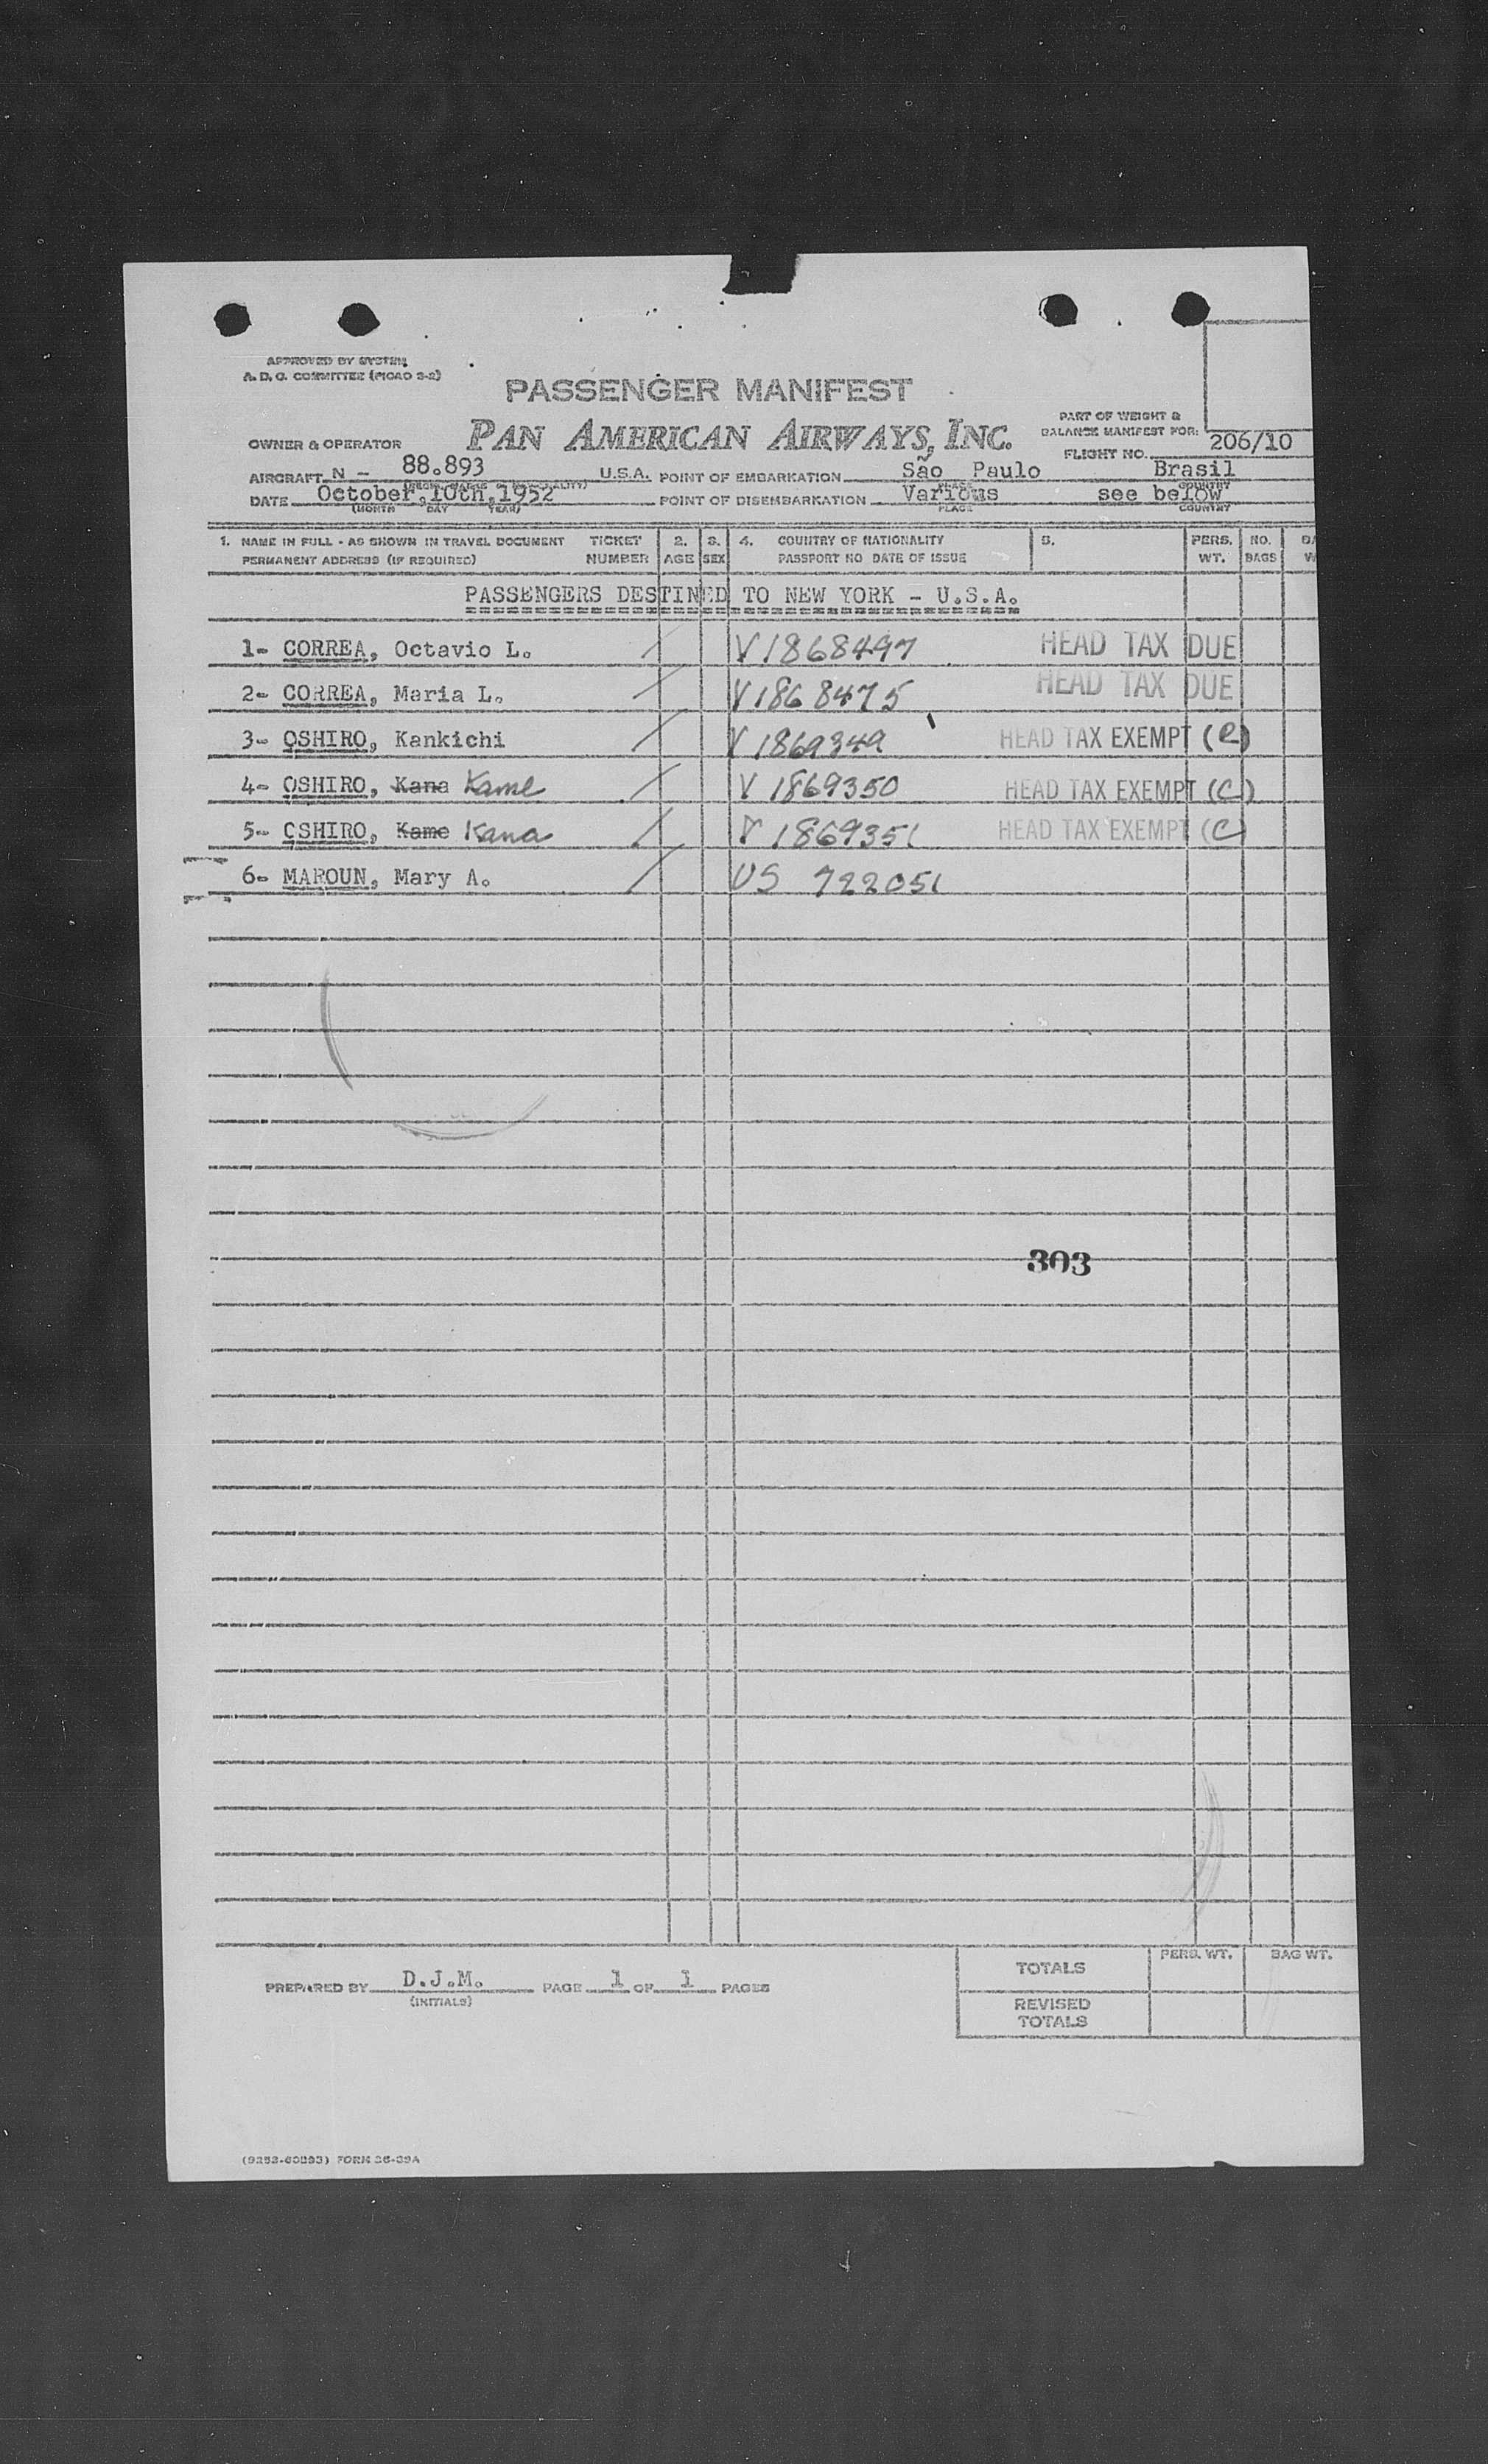 APPROVED BY SYSTEM
A. D. C. COMMITTEE (PICAO 3-2)
PASSENGER MANIFEST
PAN AMERICAN AIRWAYS, INC.
OWNER & OPERATOR
PART OF WEIGHT &
BALANCE MANIFEST FOR:
FLIGHT NO. 206/10
AIRCRAFT N - 88.893 U.S.A. POINT OF EMBARKATION São Paulo Brasil
PLACE COUNTRY
DATE October,10th,1952 POINT OF DISEMBARKATION Various see below
(MONTH DAY YEAR) PLACE COUNTRY
1. NAME IN FULL - AS SHOWN IN TRAVEL DOCUMENT TICKET 2. 3. 4. COUNTRY OF NATIONALITY 5. PERS. NO.
PERMANENT ADDRESS (IF REQUIRED) NUMBER AGE SEX PASSPORT NO DATE OF ISSUE WT. BAGS
PASSENGERS DESTINED TO NEW YORK - U.S.A.
1- CORREA, Octavio L. V1868497 HEAD TAX DUE
2- CORREA, Maria L. V1868475 HEAD TAX DUE
3- OSHIRO, Kankichi V 1869349 HEAD TAX EXEMPT (C)
4- OSHIRO, Kana Kame V 1869350 HEAD TAX EXEMPT (C)
5- OSHIRO, Kame Kana V 1869351 HEAD TAX EXEMPT (C)
6- MAROUN, Mary A. US 722051
303
PERS. WT. BAG WT.
TOTALS
PREPARED BY D.J.M. PAGE 1 OF 1 PAGES
(INITIALS)
REVISED
TOTALS
FORM 36-39A